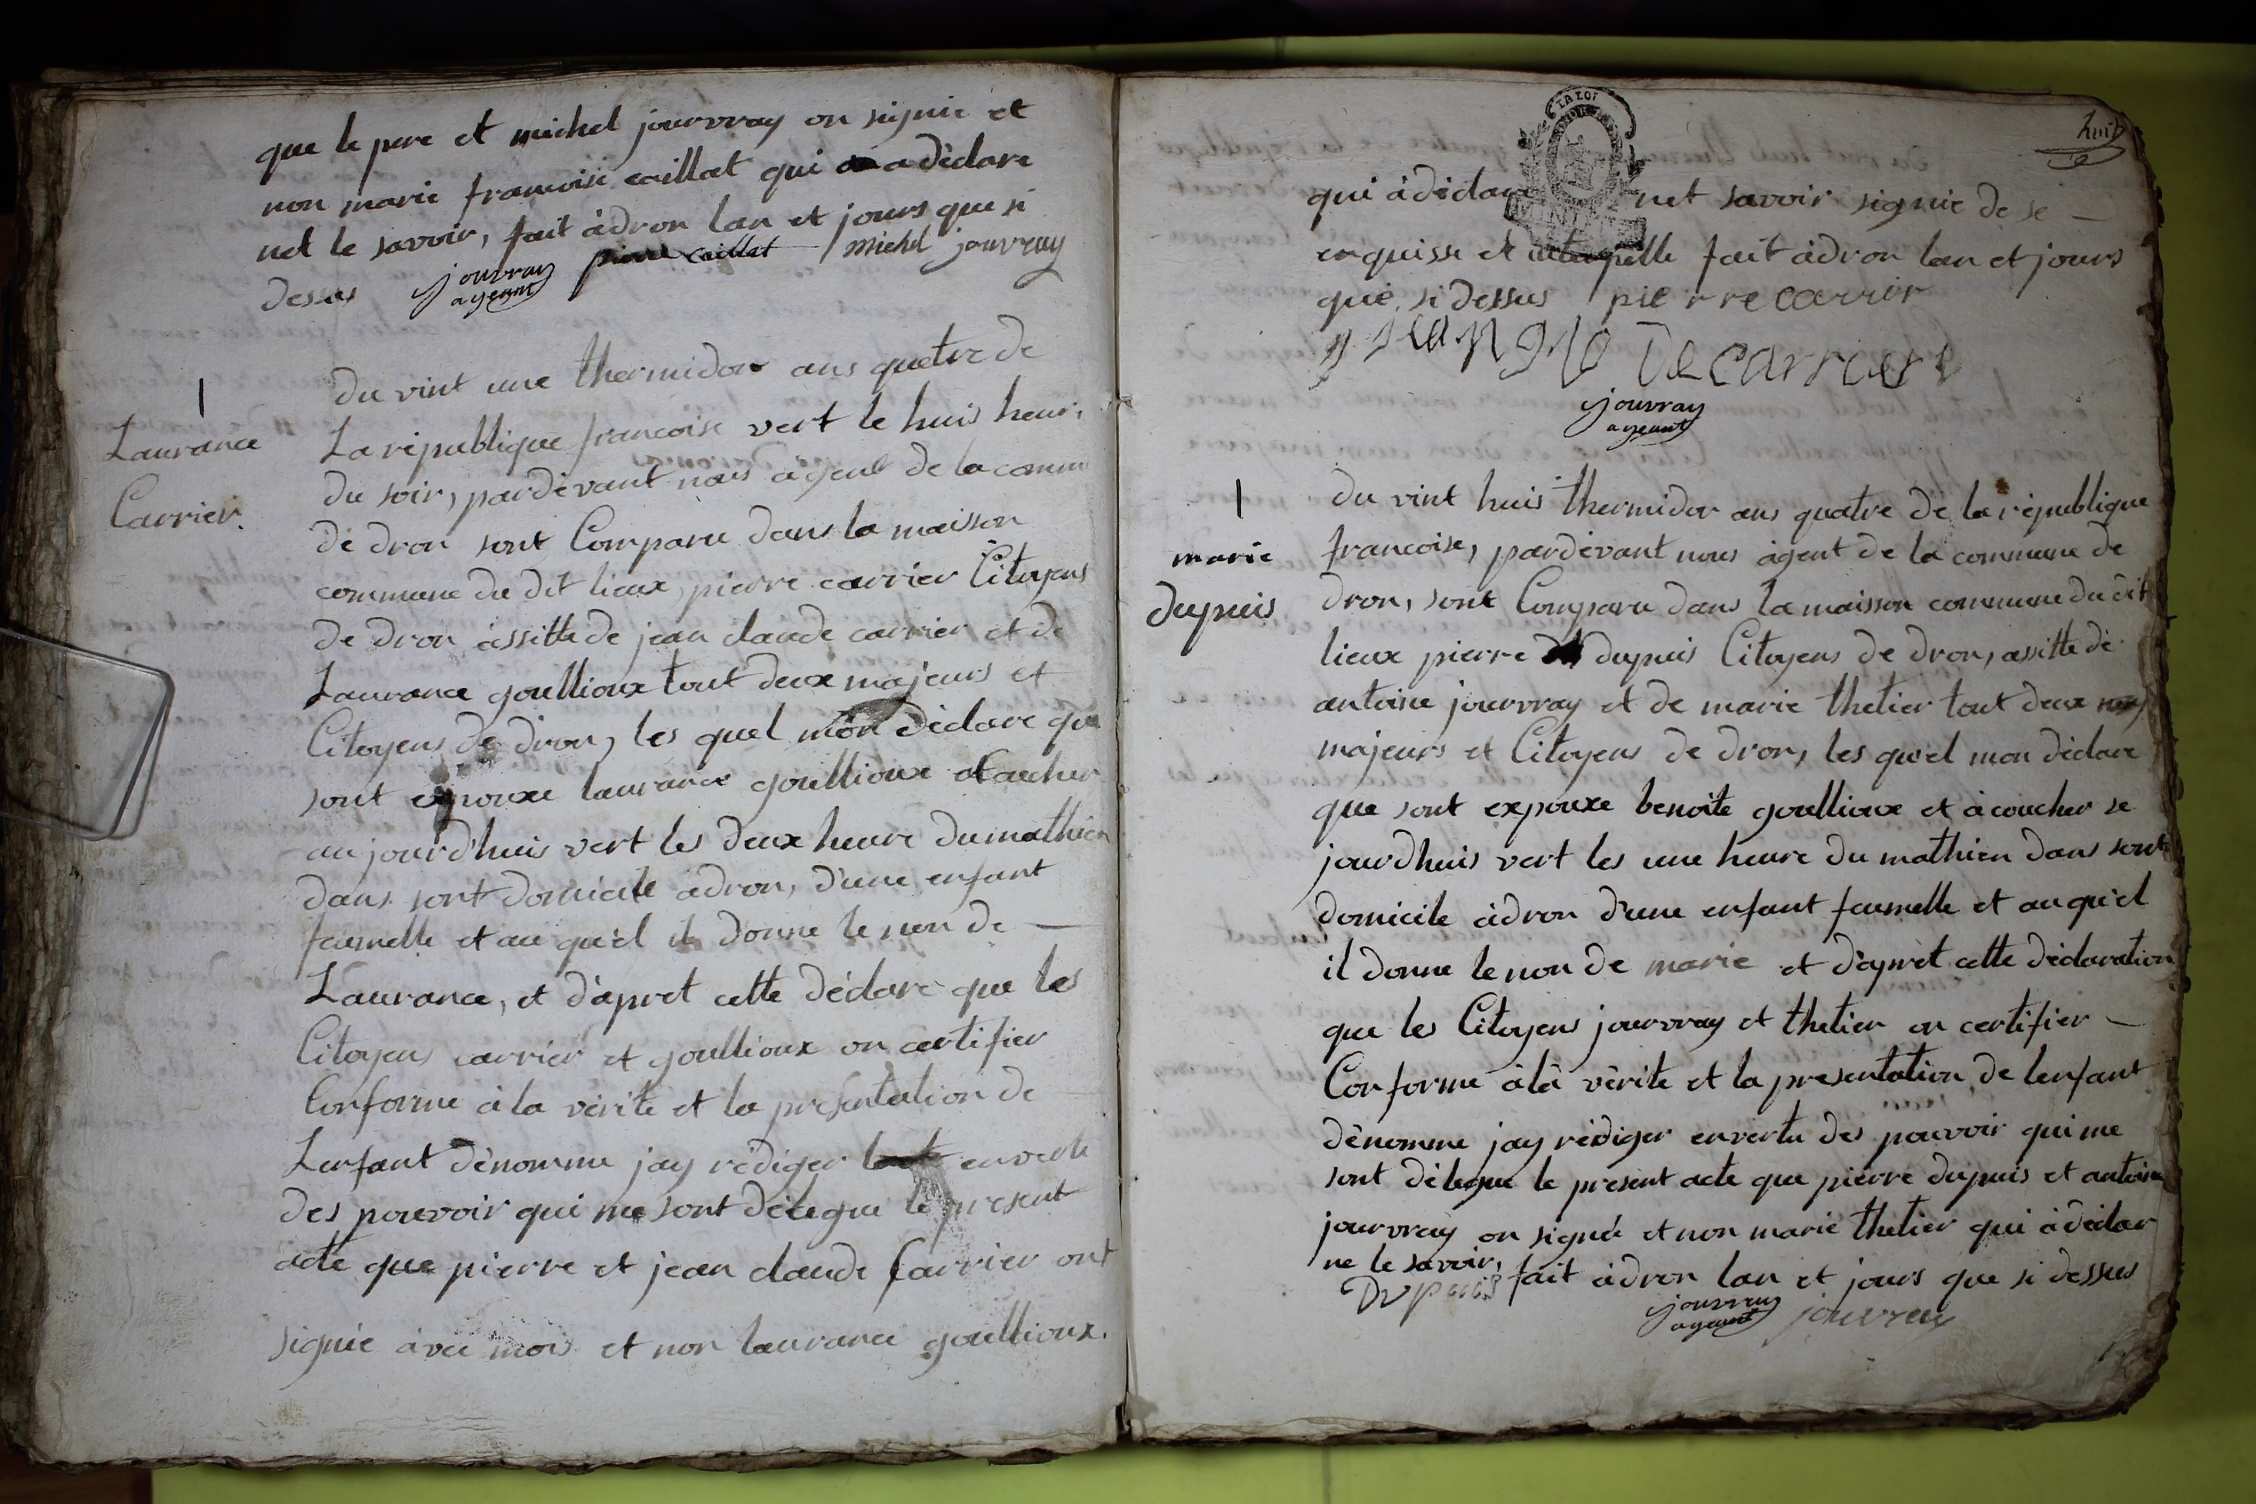 que le pere et michel jourvray on signie et
non marie francoise caillat qui a déclare
net le savoir, fait à dron lan et jours que si
dessus jouvray agent pierre caillat michel jouvray
1
Laurance
Carrier.
Du vint une thermidor ans quatre de
La république francoise vert le huis heur,
du soir, pardevant nous àgent de la comm
de dron sont Comparu dans la maison
commune du dit lieux, pierre carrier Citoyens
de dron àssitte de jean claude carrier et de
Laurance goullioux tout deux majeurs et
Citoyens de dron, les quel mon déclare que
sont expouxe laurance goullioux acoucher
aujourd'huis vert les deux heure du mathien
dans sont domicile àdron, d'une enfant
faumelle et au qu'el il donne le non de —
Laurance, et d'apret cette déclare que les
Citoyens carrier et goullioux on certifier
Conforme à la vérite et la presentation de
Lenfant dénomme jay rédiger en vertu
des pouvoir qui me sont délegue le present
acte que pierre et jean claude Carrier ont
signie àvec moi et non laurance goullioux.
LA LOI
huit
qui àdéclare net savoir signie de se —
enquisse et fait àdron lan et jours
que si dessus pierre carrier
jouvray
agent
1
marie
dupuis
du vint huis thermidor ans quatre de la république
francoise, pardevant nous àgent de la commune de
dron, sont Comparu dans la maison commune du dit
lieux pierre dupuis Citoyens de dron, assitte de
antoine jourvray et de marie thetier tout deux
majeurs et Citoyens de dron, les qu'el mon déclare
que sont expouxe benoite goullioux et àcoucher se
jourdhuis vert les une heure du mathien dans sont
domicile àdron d'une enfant faumelle et au qu'el
il donne le non de marie et d'apret cette déclaration
que les Citoyens jourvray et thetier on certifier —
Conforme àlà vérite et la presentation de lenfant
dénomme jay rédiger en vertu des pouvoir qui me
sont délegue le present acte que pierre dupuis et antoine
jourvray on signé et non marie thetier qui àdéclar
ne le savoir, fait àdron lan et jours que si dessus
Dupuis jouvray agent jouvray